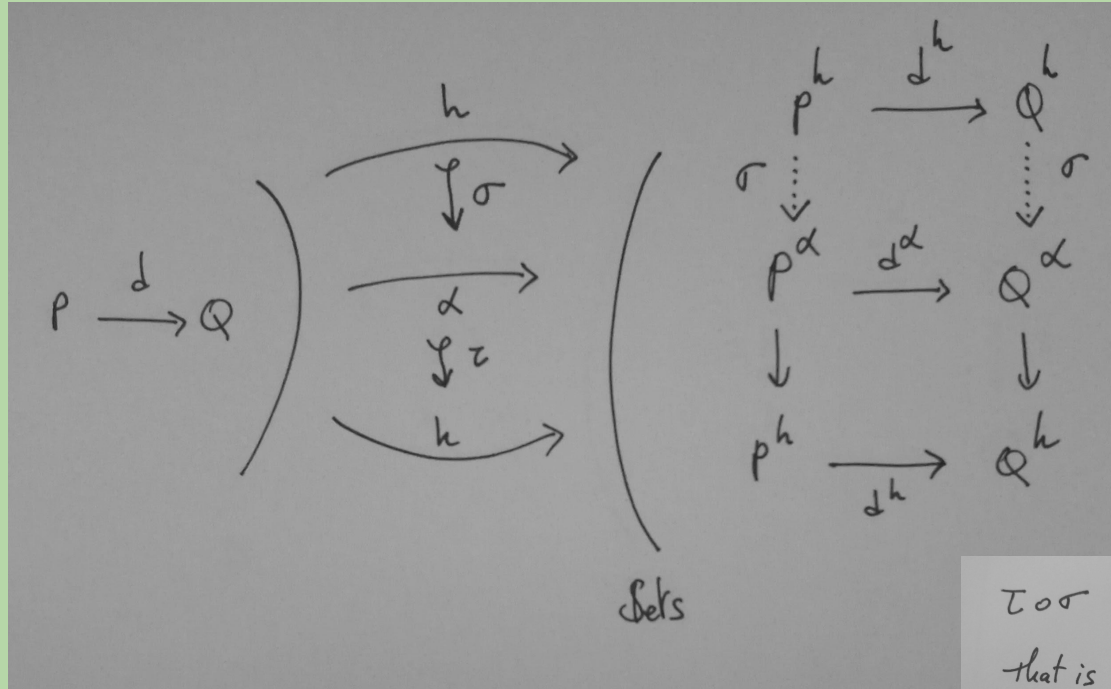 P d Q
h
σ
α
τ
h
Sets
P^h d^h Q^h
σ σ
P^α d^α Q^α
P^h d^h Q^h
τ o σ
that is